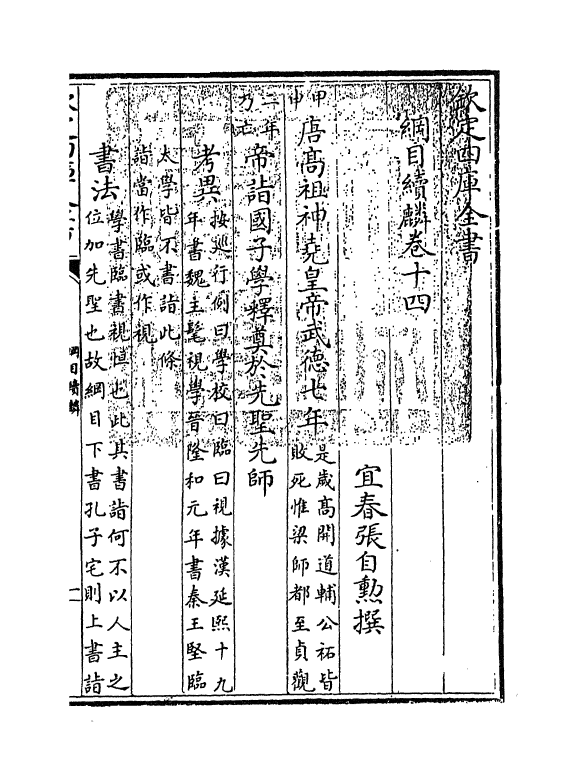 欽定四庫全書
綱目續麟卷十四
宜春張自勲撰
甲申
唐高祖神堯皇帝武德七年
是歲高開道輔公祏皆
敗死惟梁師都至貞觀
二年乃亡
帝詣國子學釋奠於先聖先師
考異
按廵行例曰學校曰臨曰視據漢延熙十九
年書魏主髦視學晉隆和元年書秦王堅臨
太學皆不書詣此條
詣當作臨或作視
書法
學書臨書視慎也此其書詣何不以人主之
位加先聖也故綱目下書孔子宅則上書詣
綱目續麟
一